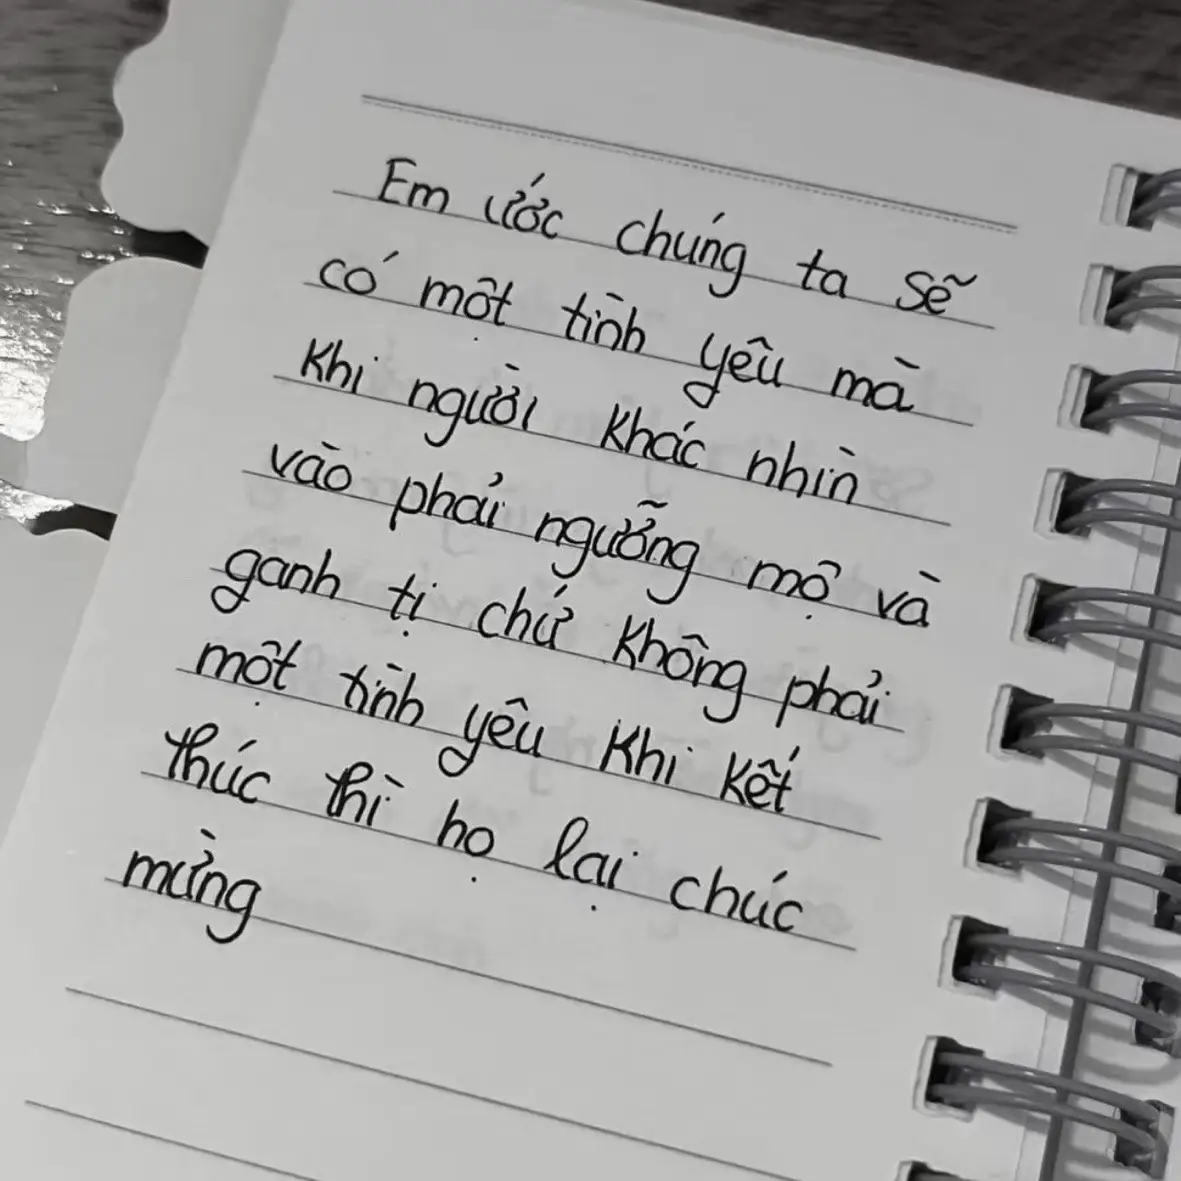 Em ước chúng ta sẽ
có một tình yêu mà
khi người khác nhìn
vào phải ngưỡng mộ và
ganh tị chứ không phải
một tình yêu khi kết
thúc thì họ lại chúc
mừng